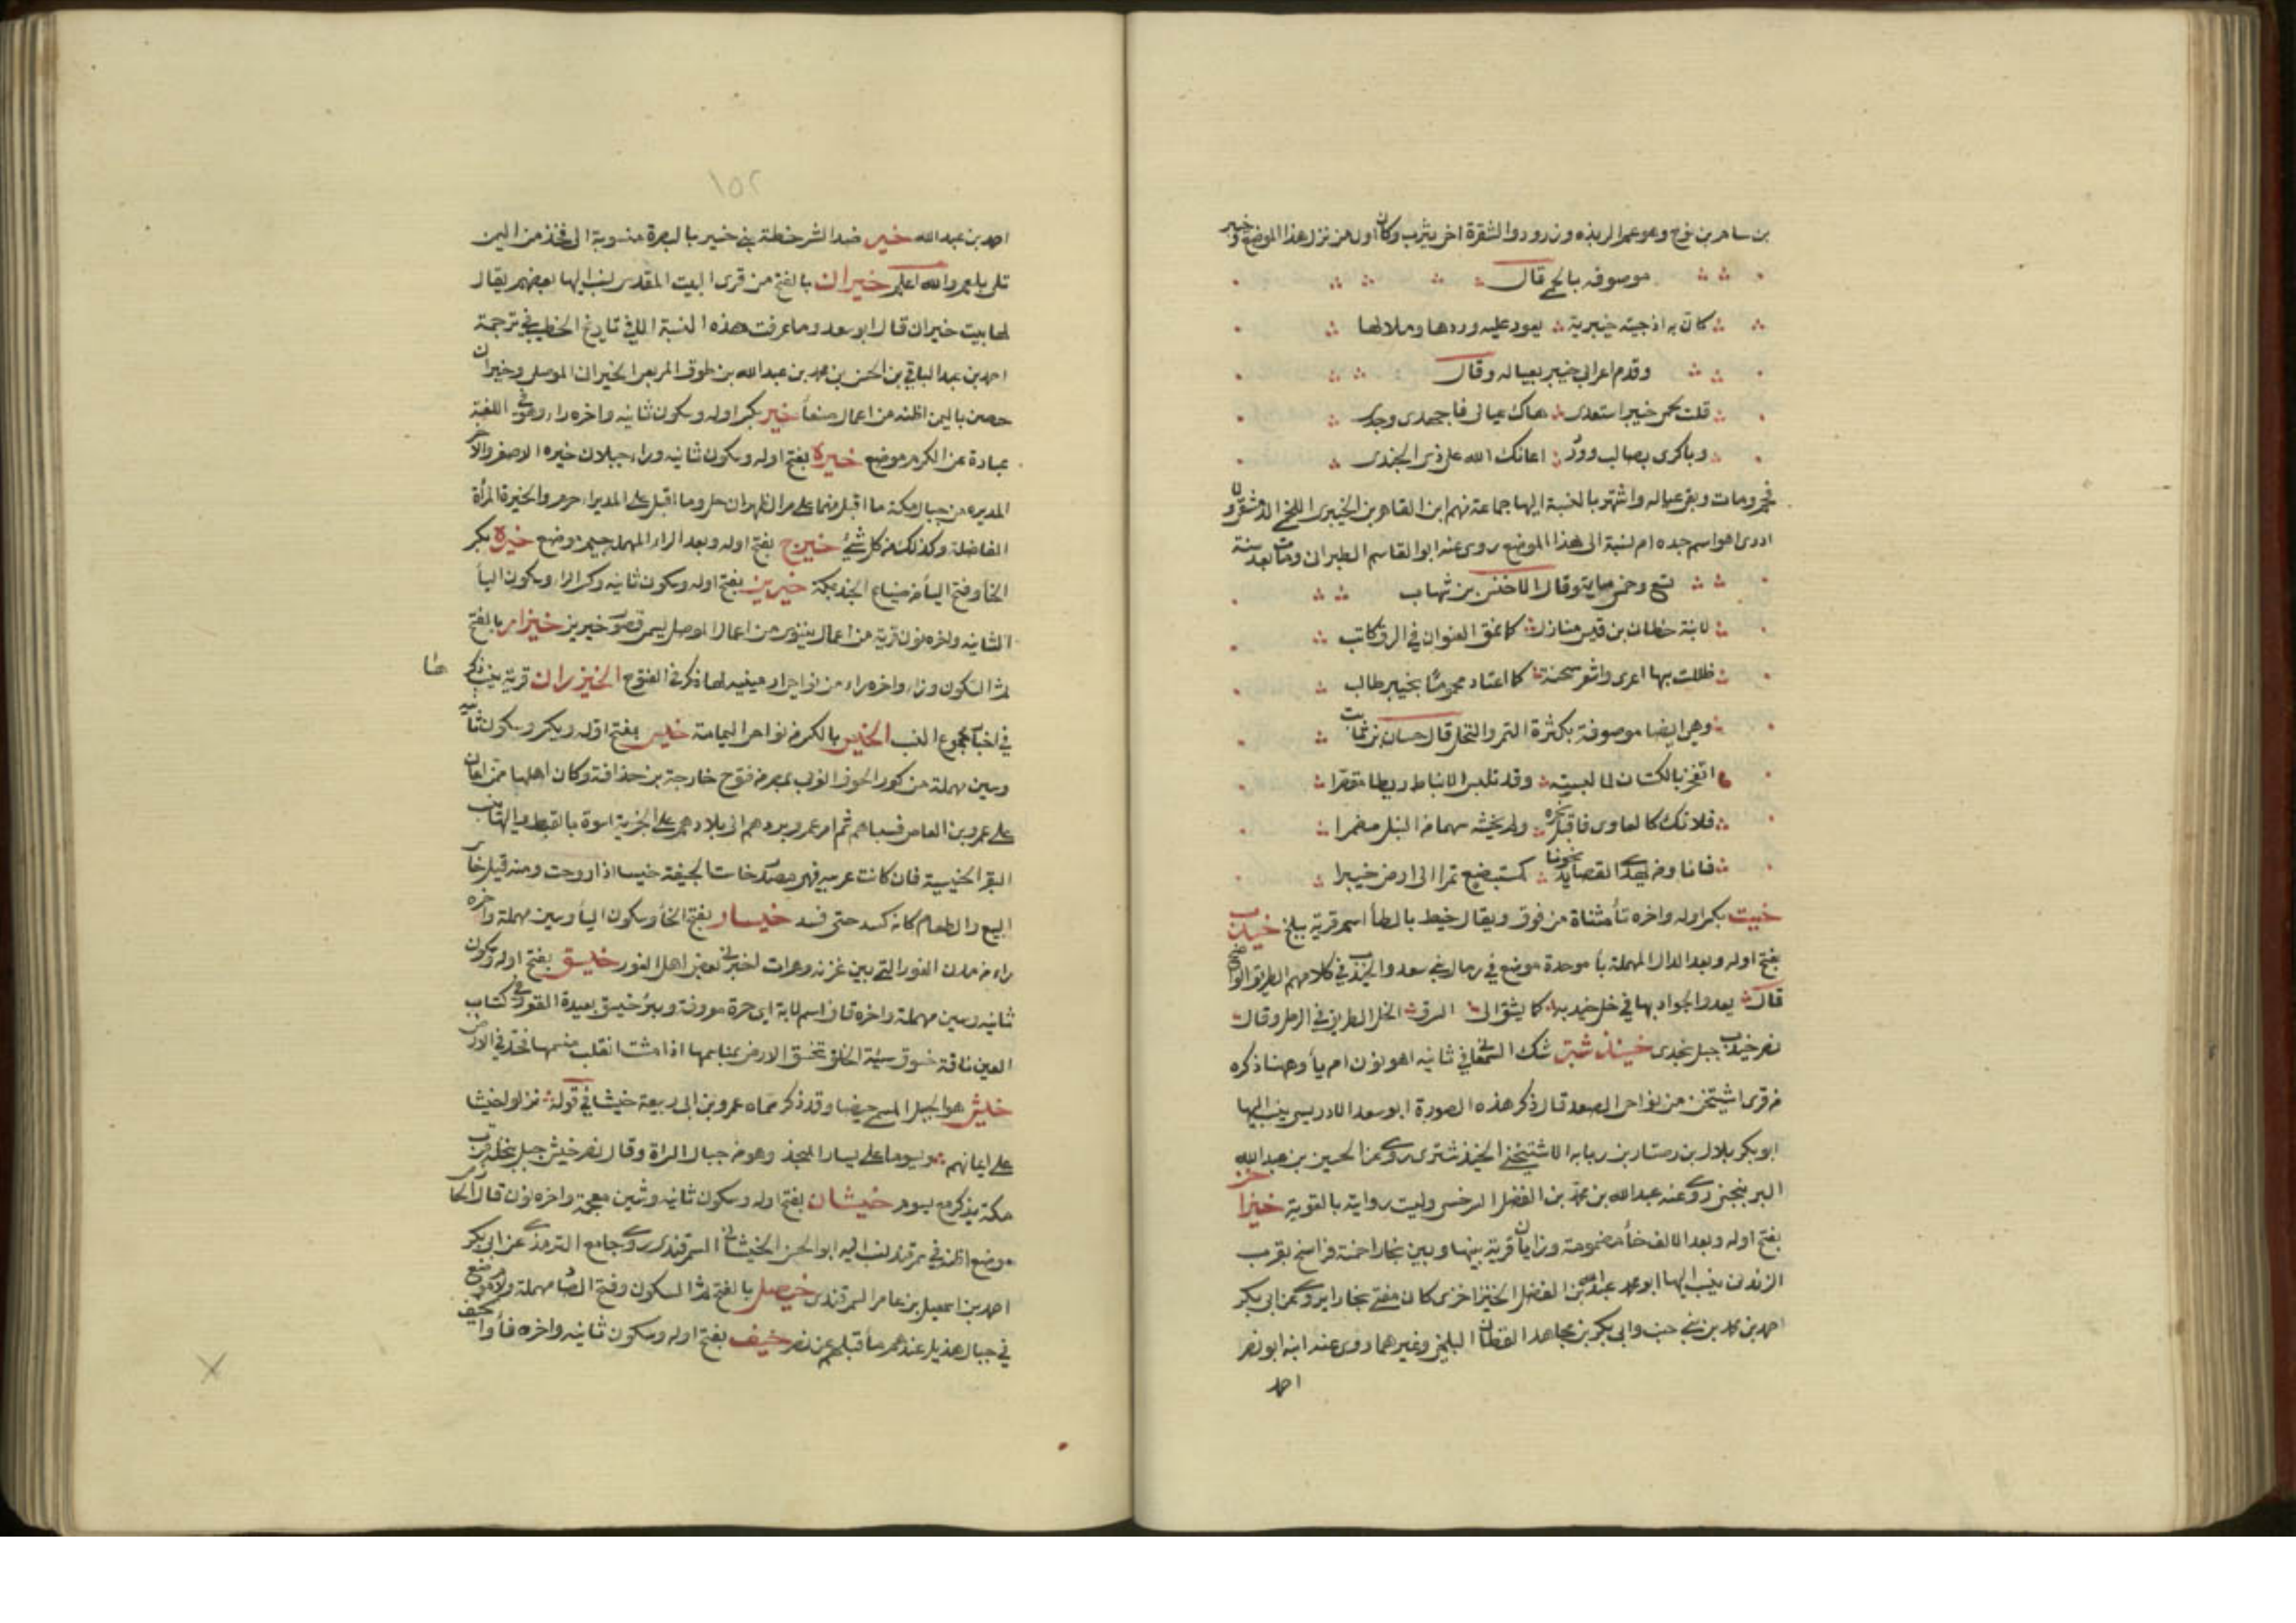 بن سام بن نوح وهو عم الربذه وزرود والشقرة اخر يثرب وكان اول من نزل هذا الموضع وخيبر
موصوفه بالحمى قال
كان به اذ جئته خيبرية يعود عليه وردها وملالها
وقدم اعرابى خيبر بعياله وقال
قلت لحمى خيبر استعدى هاك عيالى فاجهدى وجدى
وباكرى بصالب وورد اعانك الله على ذى الجندى
فحم ومات وبقى عياله واشتهر بالنسبة اليها جماعة منهم ابن القاهر بن الخيبرى اللخمى الدمشقى ولا
ادرى اهو اسم جده ام نسبة الى هذا الموضع روى عنه ابو القاسم الطبرانى ومات بعد سنة
تسع وخمسمايه وقال الاخنس بن شهاب
لابنة حطان بن قيس منازل كما نمق العنوان فى الرق كاتب
ظللت بها اعرى واشعر سخنة كما اعتاد محموما بخيبر طالب
وهى ايضا موصوفة بكثرة التمر والنخل قال حسان بن ثابت
اتفخر بالكتان لما لبسته وقد تلبس الانباط ريطا مقصرا
فلا تك كالعاوى فاقبل نحره ولم يخشه سهما من النبل مضمرا
فانا ومن يهدى القصايد نحونا كمستبضع تمرا الى ارض خيبرا
خيت بكسر اوله واخره تأ مثناة من فوق ويقال خيط بالطأ اسم قرية ببلخ خيدب
بفتح اوله وبعد الدال المهملة بأ موحدة موضع فى رمال بنى سعد والخيدب فى كلامهم الطريق الواضح
قال يعدو الجواد بها فى خل خيدبة كما يشق الى السرق الخل الطريق فى الرمل وقال
نصر خيدب جبل نجدى خيذشتر شك السمعانى فى ثانيه اهو نون ام يأ وههنا ذكره
من قرى اشتيخن من نواحى الصعد قال ذكر هذه الصورة ابو سعد الادريسى ينسب اليها
ابو بكر بلال بن رستار بن ربابه الاشتيخنى الخيذشترى روى عن الحسين بن عبد الله
البرنجنى روى عنه عبد الله بن محمد بن الفضل السرخسى وليست روايته بالقوية خيزاخز
بفتح اوله وبعد الالف خأ مضمومة وزايان قرية بينها وبين بخارا خمسة فراسخ بقرب
الزندنى ينسب اليها ابو محمد عبد الله بن الفضل الخيزاخزى كان مفتى بخارا يروى عن ابى بكر
احمد بن محمد بن بنى حنب وابى بكر بن مجاهد القطان البلخى وغيرهما روى عنه ابنه ابو نصر
احمد
١٥٢
احمد بن عبد الله خير ضد الشر خطة بنى خير بالبصرة منسوبة الى فخذ من اليمن
والله اعلم خيران بالفتح من قرى البيت المقدس نسب اليها بعضهم يقال
لها بيت خيران قال ابو سعد وما عرفت هذه النسبة الا فى تاريخ الخطيب فى ترجمة
احمد بن عبد الباقى بن الحسن بن محمد بن عبد الله بن طوق الربعى الخيرانى الموصلى وخيران
حصن باليمن اظنه من اعمال صنعأ خير بكسر اوله وسكون ثانيه واخره راء وهو فى اللغة
عبارة عن الكرم موضع خيرة بفتح اوله وسكون ثانيه وراء جبلان خيره الاصفر والاخر
المديره من جبال مكة ما اقبل منهما على مر الظهران حل وما اقبل على المديرا حرم والخيرة المرأة
الفاضلة وكذلك من كل شئ خيرج بفتح اوله وبعد الراء المهملة جيم موضع خيرة بكسر
الخأ وفتح اليأ من ضياع الجند بمكة خيرين بفتح اوله وسكون ثانيه وكسر الرا وسكون اليأ
الثانيه واخره نون قرية من اعمال نينوى من اعمال الموصل يسمى قصور خيرين خيزار بالفتح
ثم السكون وزاء واخره راء من نواحى ارمينيه لها ذكر فى الفتوح الخيزران قرية ينسب ذكر هنا
فى اخبار مجموع النسب الخيس بالكسر من نواحى اليمامة خيس بفتح اوله ويكسر وسكون ثانيه
وسين مهملة من كور الحوف الغربى بمصر من فتوح خارجة بن حذافة وكان اهلها ممن اعان
على عمرو بن العاص فسباهم ثم امر عمر بردهم الى بلادهم على الجزية اسوة بالقبط واليها تنسب
البقر الخيسية فان كانت عربيه فهى مصدر خاست الجيفة خيسا اذا اروحت ومنه قيل خاس
البيع والطعام كانه كسد حتى فسد خيسار بفتح الخأ وسكون اليأ وسين مهملة واخره
راء من مدن الغور التى بين غزنه وهرات اخبرنى بعض اهل الغور خيسق بفتح اوله وسكون
ثانيه وسين مهملة واخره قاف اسم لابة اى حرة معروفة وبئر خيسق بعيدة القعر وفى كتاب
العين ناقة خسوق سيئة الخلق تخسق الارض بمناسمها اذا مشت انقلب منسمها فخذ فى الارض
خيش هو الجبل المسمى حيضا وقد ذكر سماه عمرو بن ابى ربيعة خيشا فى قوله تركوا خيشا
على ايمانهم ويسوما على يسار المنجد وهو من جبال السراة وقال نصر خيش جبل بنخلة قرب
مكة يذكر مع يسوم خيشان بفتح اوله وسكون ثانيه وشين معجمة واخره نون قال الحازمى
موضع اظنه فى سمرقند نسب اليه ابو الحسن الخيشانى السمرقندى روى جامع الترمذى عن ابى بكر
احمد بن اسمعيل بن عامر السمرقندى خيصل بالفتح ثم السكون وفتح الصاد مهملة ولام موضع
فى جبال هذيل عندهم ما قبلهم عن نصر خيف بفتح اوله وسكون ثانيه واخره فأ والخيف